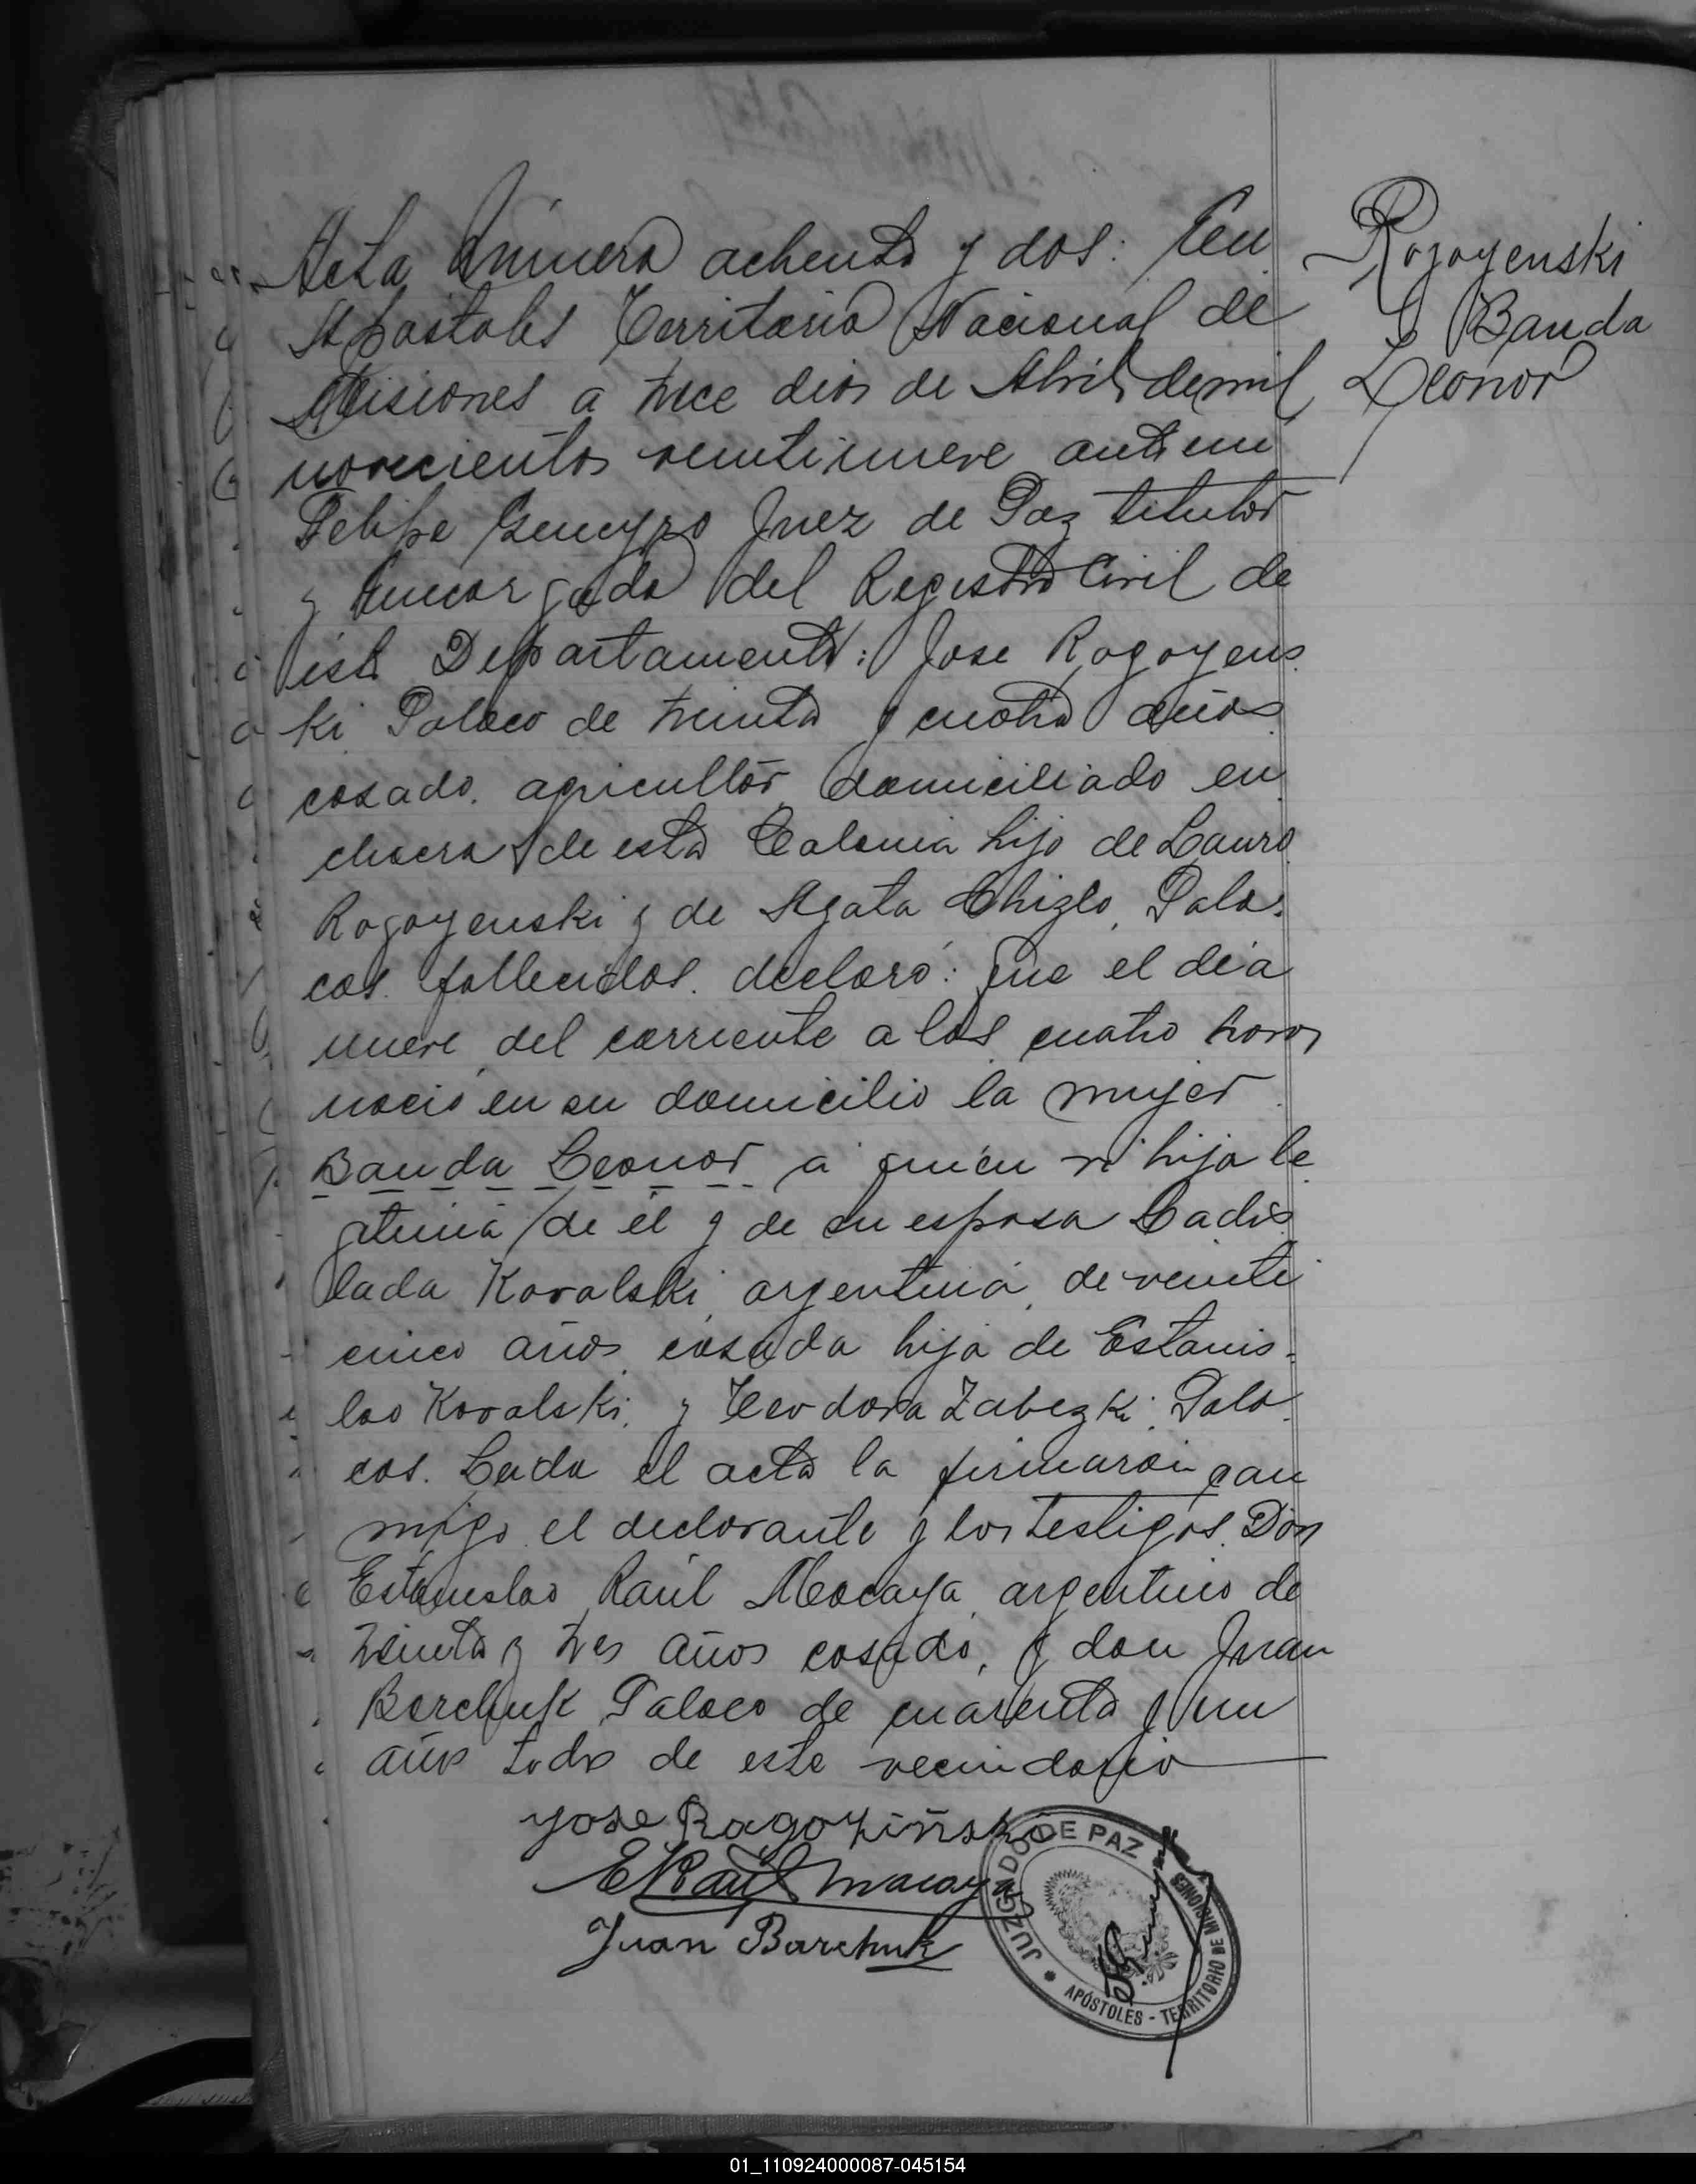 Acta Número ochenta y dos: En
Apostoles Territorio Nacional de
Misiones a trece dias de Abril de mil
novecientos veintinueve ante mi
Felipe Juez de Paz titular
y Encargado del Registro Civil de
este Departamento: Jose Rogoyens
ki Polaco de treinta y cuatro años
casado. agricultor domiciliado en
chacra de esta Colonia hijo de Lauro
Rogoyenski y de Agata Chizlo, Pola-
cos. fallecidos. declaró: Que el dia
nueve del corriente a las cuatro horas
nacio en su domicilio la mujer
Banda Leonor a quien vi hija le
gitima de él y de su esposa Ladis
lada Kovalski, argentina, de veinti
cinco años, casada hija de Estanis-
lao Kovalski, y Teodora Zabezki. Pola
cos. Leida el acta la firmaron con
migo el declarante y los testigos. Don
Estanislao Raúl Macaya, argentino de
treinta y tres años casado, y don Juan
Barchuk Polaco de cuarenta y un
años todos de este vecindario
Jose Ragoziński
E Raúl Macaya
Juan Barchuk
JUZGADO DE PAZ
APÓSTOLES - TERRITORIO DE MISIONES
Rogoyenski
Banda
Leonor
01_110924000087-045154